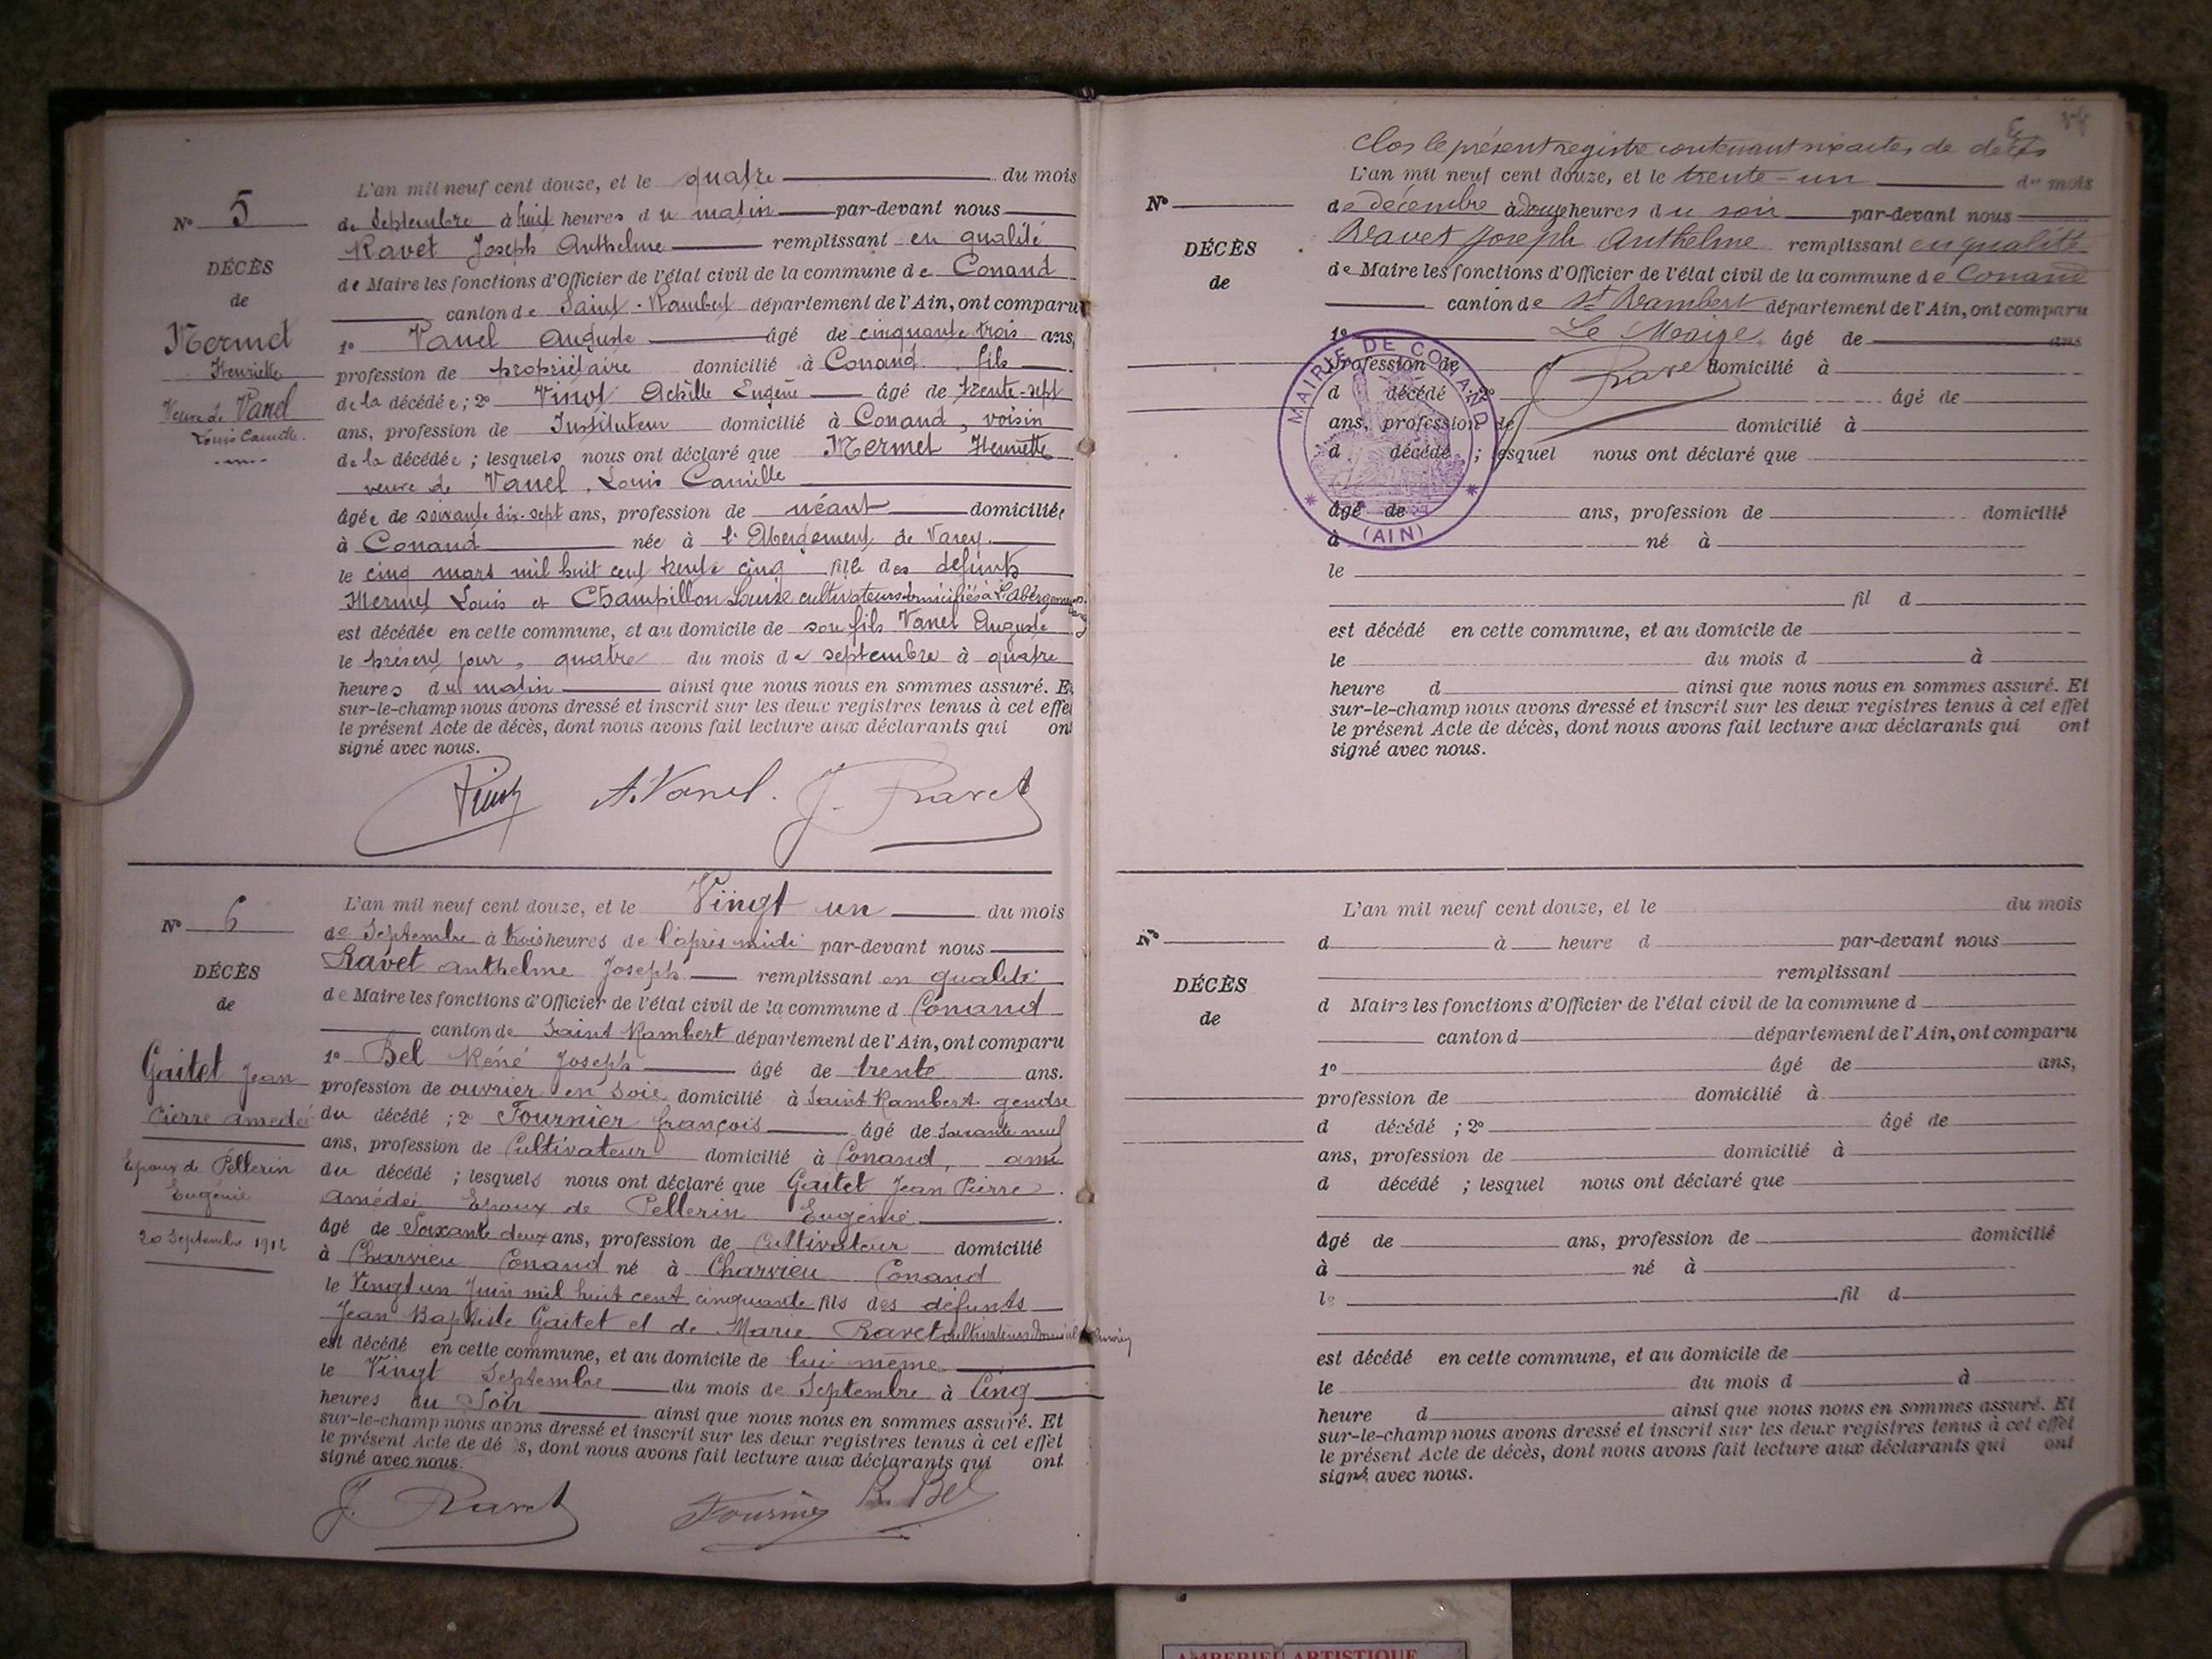 N° 5
DÉCÈS
de
Mermet
Henriette
Veuve de Vanel
Louis Camille.
L'an mil neuf cent douze, et le quatre du mois
de Septembre à huit heures du matin par-devant nous
Ravet Joseph Anthelme remplissant en qualité
de Maire les fonctions d'Officier de l'état civil de la commune de Conand
canton de Saint-Rambert département de l'Ain, ont comparu
1° Vanel Auguste âgé de cinquante trois ans,
profession de propriétaire domicilié à Conand fils
de la décédée; 2° Vinot Achille Eugène âgé de trente-sept
ans, profession de Instituteur domicilié à Conand, voisin
de la décédée; lesquels nous ont déclaré que Mermet Henriette
veuve de Vanel, Louis Camille
âgée de soixante dix-sept ans, profession de néant domiciliée
à Conand née à l'Abergement de Varey
le cinq mars mil huit cent trente cinq fille des défunts
Mermet Louis et Champillon Louise cultivateurs domiciliés à L'Abergement
est décédée en cette commune, et au domicile de son fils Vanel Auguste
le présent jour, quatre du mois de septembre à quatre
heures du matin ainsi que nous nous en sommes assuré. Et
sur-le-champ nous avons dressé et inscrit sur les deux registres tenus à cet effet
le présent Acte de décès, dont nous avons fait lecture aux déclarants qui ont
signé avec nous.
Vinot A. Vanel. J. Ravet
N° 6
DÉCÈS
de
Gaitet Jean
Pierre amédéé
Epoux de Pellerin
Eugénie
20 Septembre 1912
L'an mil neuf cent douze, et le Vingt un du mois
de Septembre à trois heures de l'après midi par-devant nous
Ravet Anthelme Joseph remplissant en qualité
de Maire les fonctions d'Officier de l'état civil de la commune d Conand
canton de Saint Rambert département de l'Ain, ont comparu
1° Bel Réné Joseph âgé de trente ans.
profession de ouvrier en soie domicilié à Saint Rambert gendre
du décédé; 2° Fournier françois âgé de soixante neuf
ans, profession de Cultivateur domicilié à Conand, ami
du décédé; lesquels nous ont déclaré que Gaitet Jean Pierre
amédéé Epoux de Pellerin Eugénie
âgé de Soixante deux ans, profession de Cultivateur domicilié
à Charvieu Conand né à Charvieu Conand
le Vingt un Juin mil huit cent cinquante fils des défunts
Jean Baptiste Gaitet et de Marie Ravet cultivateurs
est décédé en cette commune, et au domicile de lui même
le Vingt Septembre du mois de Septembre à Cinq
heures du Soir ainsi que nous nous en sommes assuré. Et
sur-le-champ nous avons dressé et inscrit sur les deux registres tenus à cet effet
le présent Acte de dé s, dont nous avons fait lecture aux déclarants qui ont
signé avec nous.
J. Ravet Fournier R. Bel
Clos le présent registre contenant six actes de décès
N°
DÉCÈS
de
L'an mil neuf cent douze, et le trente-un du mois
de décembre à douze heures du soir par-devant nous
Ravet Joseph Anthelme remplissant en qualité
de Maire les fonctions d'Officier de l'état civil de la commune de Conand
canton de St Rambert département de l'Ain, ont comparu
1° Le Maire, âgé de ans
profession de J Ravet domicilié à
d décédé 2° âgé de
ans, profession de domicilié à
d décédé ; lesquel nous ont déclaré que
MAIRIE DE CONAND
(AIN)
âgé de ans, profession de domicilié
à né à
le
fil d
est décédé en cette commune, et au domicile de
le du mois d à
heure d ainsi que nous nous en sommes assuré. Et
sur-le-champ nous avons dressé et inscrit sur les deux registres tenus à cet effet
le présent Acte de décès, dont nous avons fait lecture aux déclarants qui ont
signé avec nous.
N°
DÉCÈS
de
L'an mil neuf cent douze, et le du mois
d à heure d par-devant nous
remplissant
d Maire les fonctions d'Officier de l'état civil de la commune d
canton d département de l'Ain, ont comparu
1° âgé de ans,
profession de domicilié à
d décédé ; 2° âgé de
ans, profession de domicilié à
d décédé ; lesquel nous ont déclaré que
âgé de ans, profession de domicilié
à né à
le fil d
est décédé en cette commune, et au domicile de
le du mois d à
heure d ainsi que nous nous en sommes assuré. Et
sur-le-champ nous avons dressé et inscrit sur les deux registres tenus à cet effet
le présent Acte de décès, dont nous avons fait lecture aux déclarants qui ont
signé avec nous.
AMBERIEU ARTISTIQUE